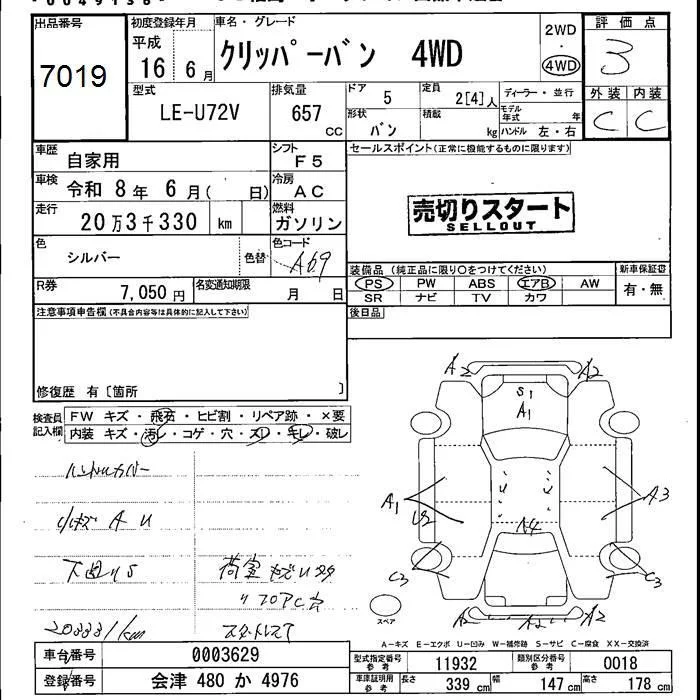 出品番号 7019
初度登録年月 平成 16年 6月
車名・グレード クリッパーバン 4WD
2WD・4WD
評価点 3
外装 C 内装 C
型式 LE-U72V
排気量 657 CC
ドア 5
形状 バン
定員 2[4]人
積載 kg
ディーラー・並行
モデル年式 年
ハンドル 左・右
車歴 自家用
シフト F5
セールスポイント(正常に機能するものに限ります)
車検 令和 8年 6月( 日)
冷房 AC
走行 20万3千330 km
燃料 ガソリン
売切りスタート
SELLOUT
色 シルバー 色替
色コード A69
装備品(純正品に限り○をつけてください)
新車保証書 有・無
PS PW ABS エアB AW
SR ナビ TV カワ
R券 7,050円
名変通知期限 月 日
後日品
注意事項申告欄(不具合内容等は具体的に記入して下さい)
修復歴 有〔箇所 〕
検査員記入欄
FW キズ・飛石・ヒビ割・リペア跡・×要
内装 キズ・汚レ・コゲ・穴・スレ・モレ・破レ
ハンドルカバー
小キズ A U
下廻りS
スタットレス
A2 A2
S1
A1
A1 U2
A3
A4
C3 C3
A2 A2 A2
スペア
A-キズ E-エクボ U-凹み W-補修跡 S-サビ C-腐食 XX-交換済
車台番号 0003629
型式指定番号 参考 11932
類別区分番号 参考 0018
登録番号 会津 480 か 4976
車庫証明用 参考 長さ 339 cm 幅 147 cm 高さ 178 cm